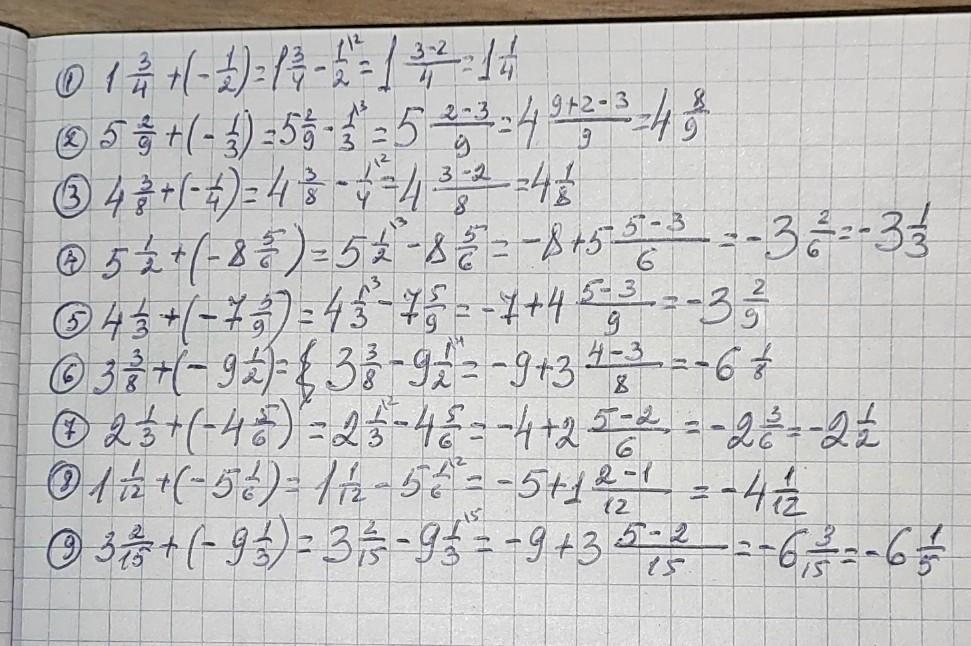 ① 1 3/4 + (- 1/2) = 1 3/4 - 1/2^(12) = 1 (3-2)/4 = 1 1/4
② 5 2/9 + (- 1/3) = 5 2/9 - 1/3^(13) = 5 (2-3)/9 = 4 (9+2-3)/9 = 4 8/9
③ 4 3/8 + (- 1/4) = 4 3/8 - 1/4^(12) = 4 (3-2)/8 = 4 1/8
④ 5 1/2 + (-8 5/6) = 5 1/2^(13) - 8 5/6 = -8+5 (5-3)/6 = -3 2/6 = -3 1/3
⑤ 4 1/3 + (-7 5/9) = 4 1/3^(13) - 7 5/9 = -7+4 (5-3)/9 = -3 2/9
⑥ 3 3/8 + (- 9 1/2) = 3 3/8 - 9 1/2^(14) = -9+3 (4-3)/8 = -6 1/8
⑦ 2 1/3 + (-4 5/6) = 2 1/3^(12) - 4 5/6 = -4+2 (5-2)/6 = -2 3/6 = -2 1/2
⑧ 1 1/12 + (-5 1/6) = 1 1/12 - 5 1/6^(12) = -5+1 (2-1)/12 = -4 1/12
⑨ 3 2/15 + (- 9 1/3) = 3 2/15 - 9 1/3^(15) = -9+3 (5-2)/15 = -6 3/15 = -6 1/5